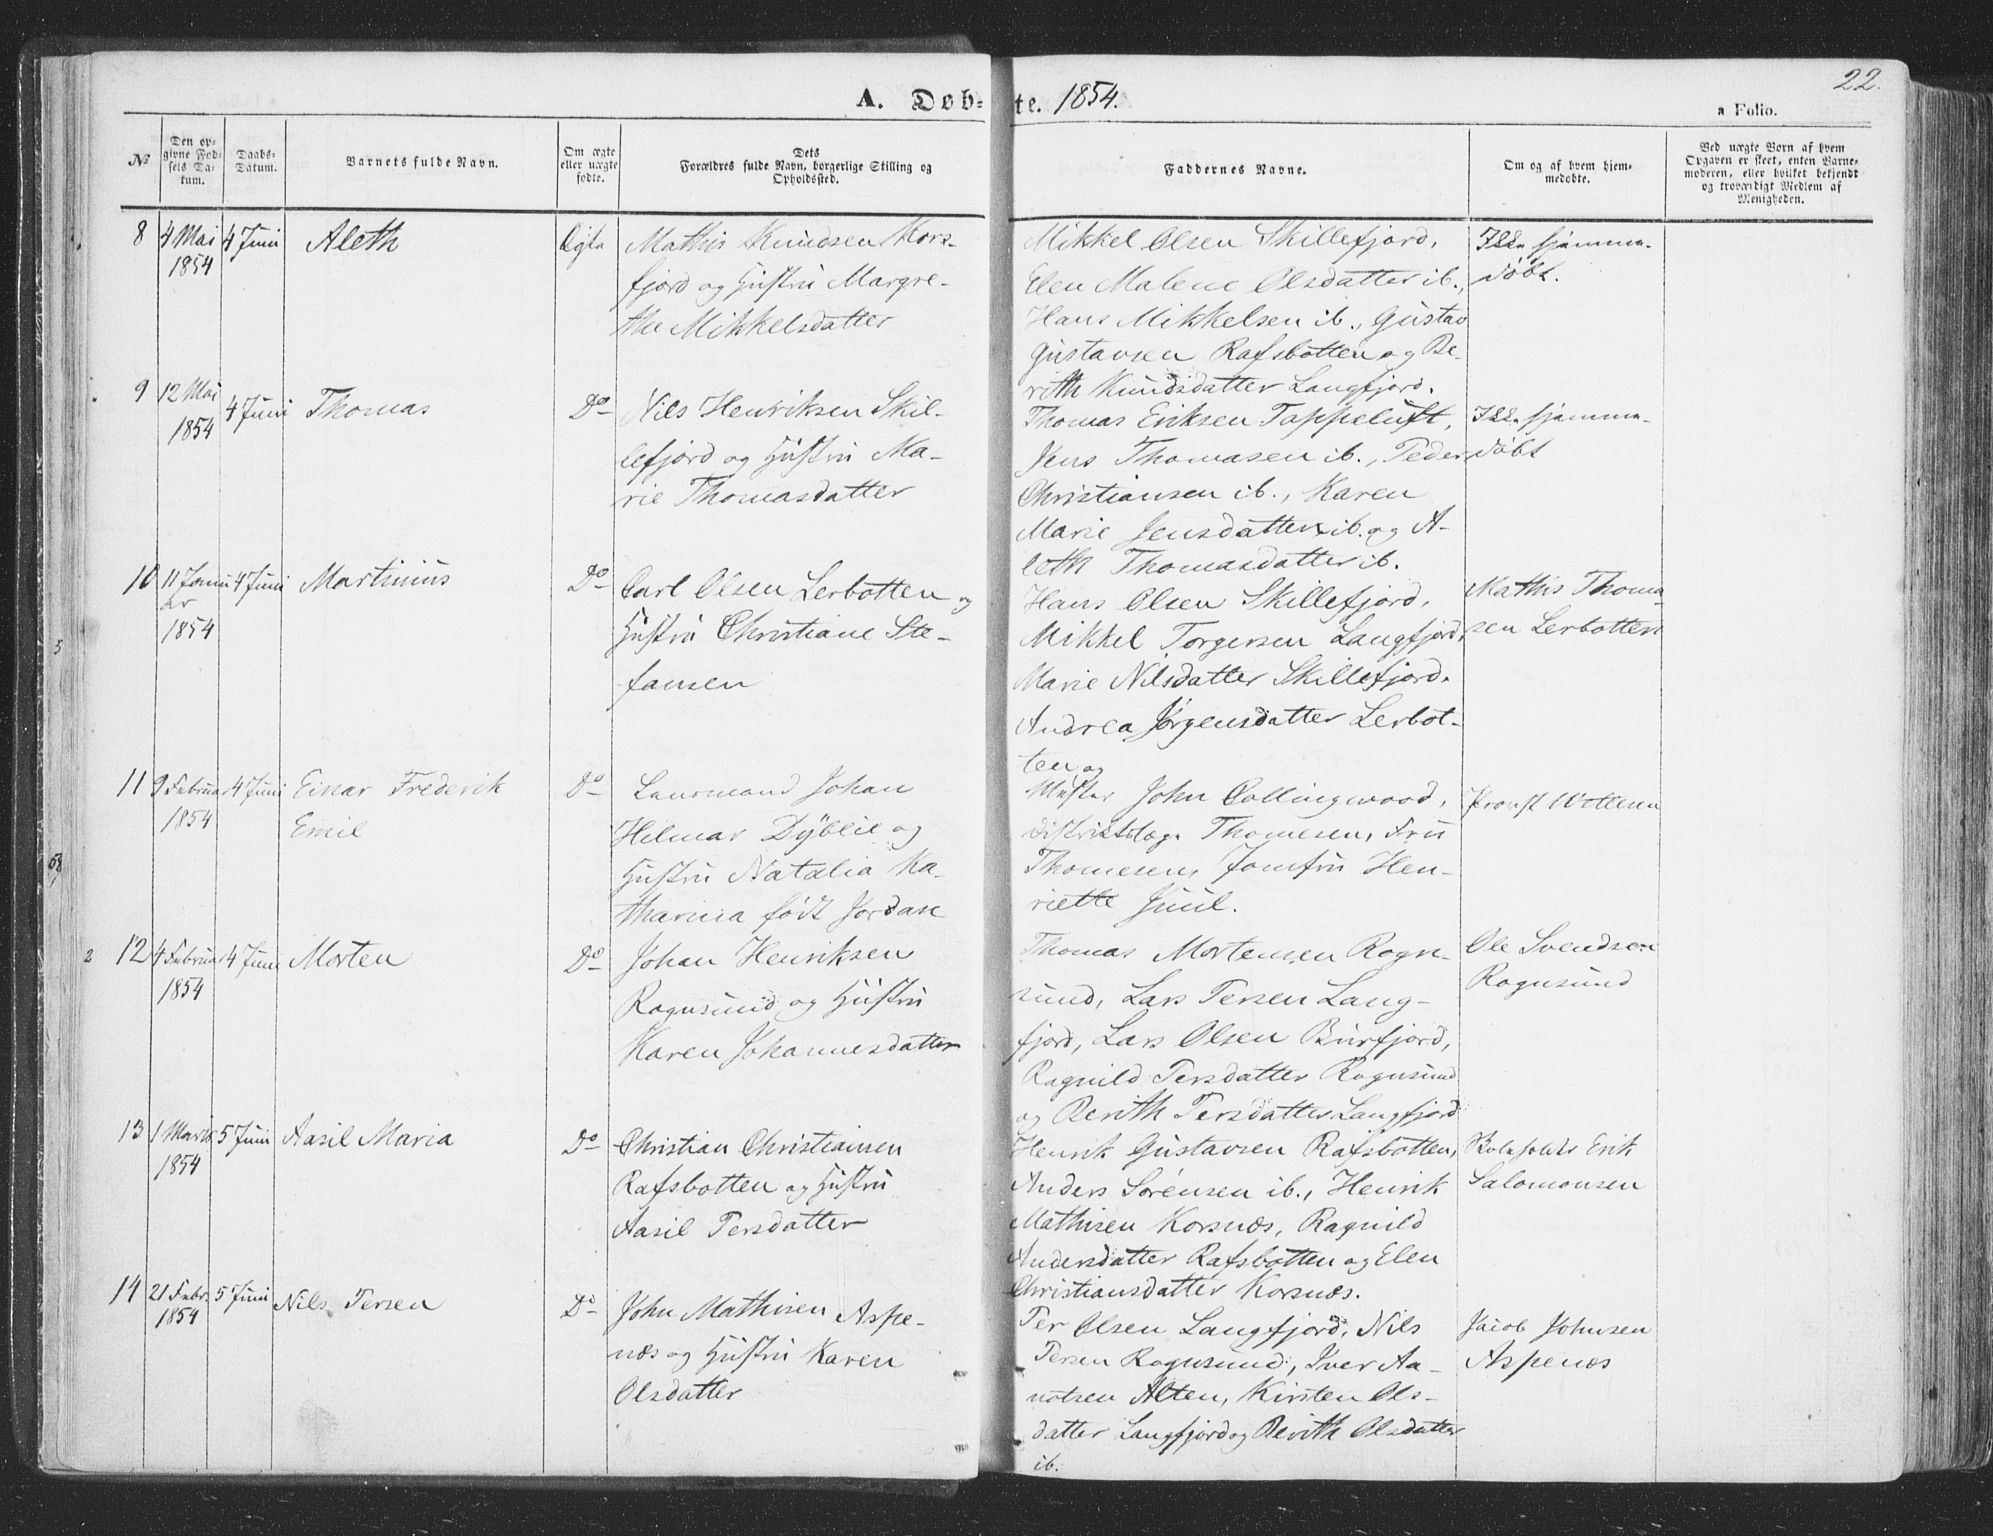 22.
A. Døb-te. 1854.
a Folio.
No
Den op-
givne Fød-
sels Da-
tum.
Daabs-
Datum.
Barnets fulde Navn.
Om ægte
eller uægte
fødte.
Dets
Forældres fulde Navn, borgerlige Stilling og
Opholdssted.
Faddernes Navne.
Om og af hvem hjem-
medøbte.
Ved uægte Børn af hvem
Opgaven er skeet, enten Barne-
moderen, eller hvilket bekjendt
og troværdigt Medlem af
Menigheden.
8 4 Mai 1854 4 Juni Aleth Ægte
Mathis Knudsen Kors-
fjord og Hustru Margre-
the Mikkelsdatter
Mikkel Olsen Skillefjord,
Elen Malene Olsdatter ib.,
Hans Mikkelsen ib., Gustav
Gustavsen Rafsbotten og Be-
rith Knudsdatter Langfjord.
Ikke hjemme-
døbt.
9 12 Mai 1854 4 Juni Thomas Do
Nils Henriksen Skil-
lefjord og Hustru Ma-
rie Thomasdatter
Thomas Eriksen Tappeluft,
Jens Thomasen ib., Peder
Christiansen ib., Karen
Marie Jensdatter ib. og A-
leth Thomasdatter ib.
Ikke hjemme-
døbt
10 11 Janu
ar
1854 4 Juni Martinus Do
Carl Olsen Lerbotten og
Hustru Christiane Ste-
fansen
Hans Olsen Skillefjord,
Mikkel Torgersen Langfjord,
Marie Nilsdatter Skillefjord.
Andrea Jørgensdatter Lerbot-
ten og
Mathis Thoma-
sen Lerbotten
5
11 9 Februar 1854 4 Juni Einar Frederik
Emil Do
Lensmand Johan
Hilmar Dyblie og
Hustru Natalia Ka-
tharina født Jordan
Mister John Collingwood,
Distriktslæge Thomesen, Fru
Thomesen, Jomfru Hen-
riette Juul.
Provst
68
2
12 4 Februar 1854 4 Juni Morten Do
Johan Henriksen
Rognsund og Hustru
Karen Johannesdatter
Thomas Mortensen Rogn-
sund, Lars Persen Lang-
fjord, Lars Olsen Burfjord,
Ragnild Persdatter Rognsund
og Berith Persdatter Langfjord
Ole Svendsen
Rognsund
13 1 Marts 1854 5 Juni Aasil Maria Do
Christian Christiansen
Rafsbotten og Hustru
Aasil Persdatter
Henrik Gustavsen Rafsbotten,
Anders Sørensen ib., Henrik
Mathisen Korsnæs, Ragnild
Andersdatter Rafsbotten og Elen
Christiansdatter Korsnæs.
Erik
Salomonsen
14 21 Febr. 1854 5 Juni Nils Persen Do
John Mathisen Aspe-
næs og Hustru Karen
Olsdatter
Per Olsen Langfjord, Nils
Persen Rognsund, Iver Aa-
notsen Alten, Kirsten Ols-
datter Langfjord og Berith Olsdatter
ib.
Jacob Johnsen
Aspenæs